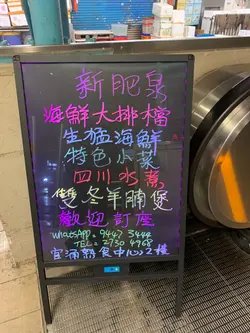 新肥泉
海鮮大排檔
生猛海鮮
特色小菜
四川水煮
雙冬羊腩煲
歡迎訂座
WhatsApp = 9447 5444
TEL = 2730 4968
官涌熟食中心2樓